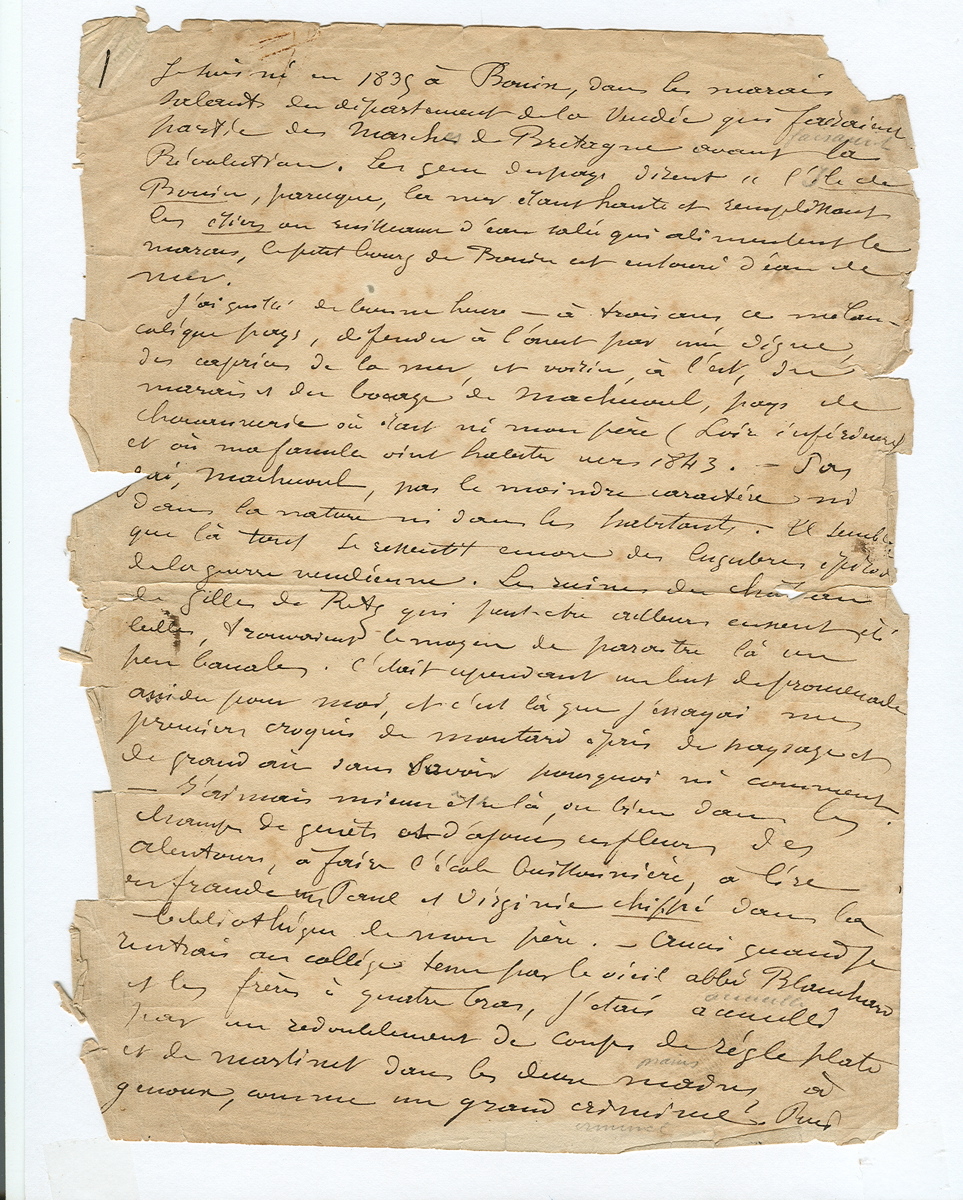 1
Je suis né en 1835 à Bouin, dans les marais
salants du département de la Vendée qui faisaient
faisaient
partie des Marches de Bretagne avant la
Révolution. Les gens du pays disent « l'île de
Bouin, parceque, la mer étant haute et remplissant
les étiers ou ruisseaux d'eau salée qui alimentent le
marais, le petit bourg de Bouin est entouré d'eau de
mer.
J'ai quitté de bonne heure – à trois ans ce mélan-
colique pays, défendu à l'ouest par une digue,
des caprices de la mer, et voisin, à l'est, du
marais et du bocage de Machecoul, pays de
chouannerie où était né mon père (Loire inférieure)
et où ma famille vint habiter vers 1843. – Pas
gai, Machecoul, pas le moindre caractère ni
dans la nature ni dans les habitants. Il semble
que là tout se ressent encore des lugubres
de la guerre vendéenne. Les ruines du château
de Gilles de Retz qui peut-être ailleurs eussent été
belles, trouvaient le moyen de paraître là un
peu banales. C'était cependant un but de promenade
assidu pour moi, et c'est là que j'essayai mes
premiers croquis de moutard épris de paysage et
de grand air sans savoir pourquoi ni comment.
– J'aimais mieux être là, ou bien dans les
champs de genêts et d'ajoncs en fleurs des
alentours, à faire l'école buissonnière, à lire
en fraude un Paul et Virginie chippé dans la
bibliothèque de mon père. – Aussi quand je
rentrais au collége tenu par le vieil abbé Blanchard
et les frères à quatre bras, j'étais accueilli
accueilli
par un redoublement de coups de règle plate
et de martinet dans les deux mains à
mains
genoux, comme un grand criminel. Puis
criminel